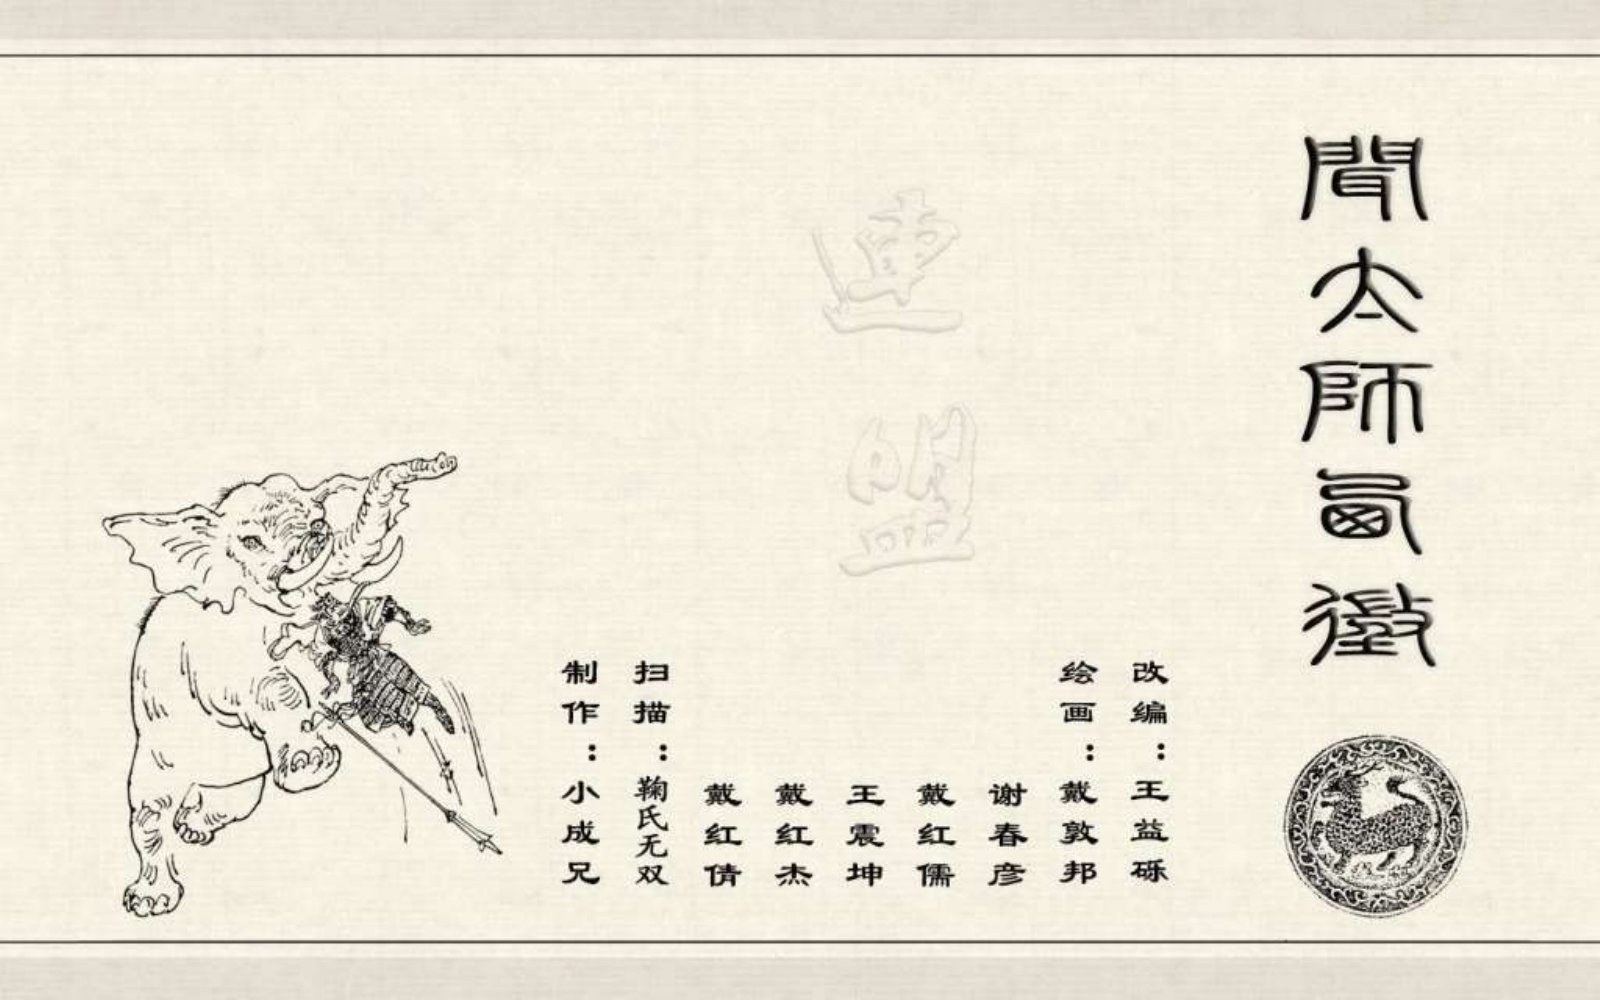 聞太師西徵
連盟
改编：王益砾
绘画：戴敦邦
谢春彦
戴红儒
王震坤
戴红杰
戴红倩
扫描：鞠氏无双
制作：小成兄